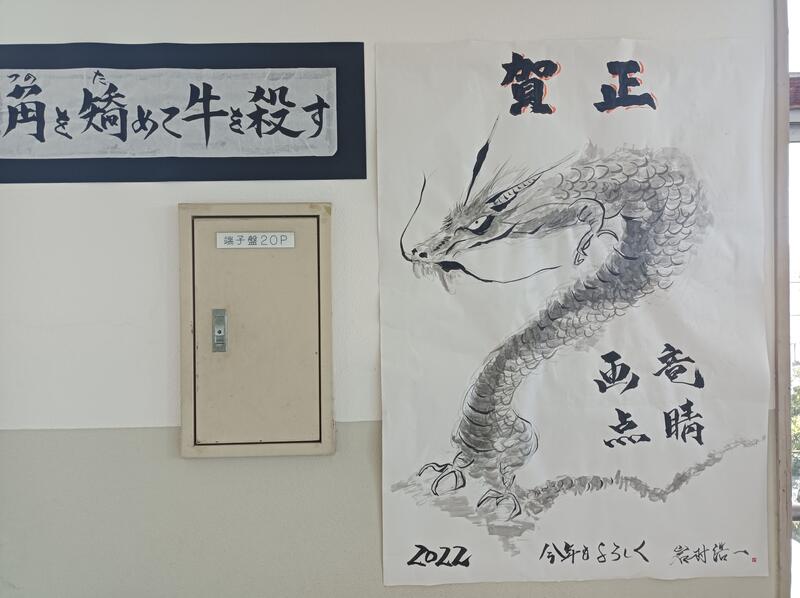 つの た
角を矯めて牛を殺す
端子盤20P
賀正
画竜
点睛
2022 今年もよろしく 岩村浩一